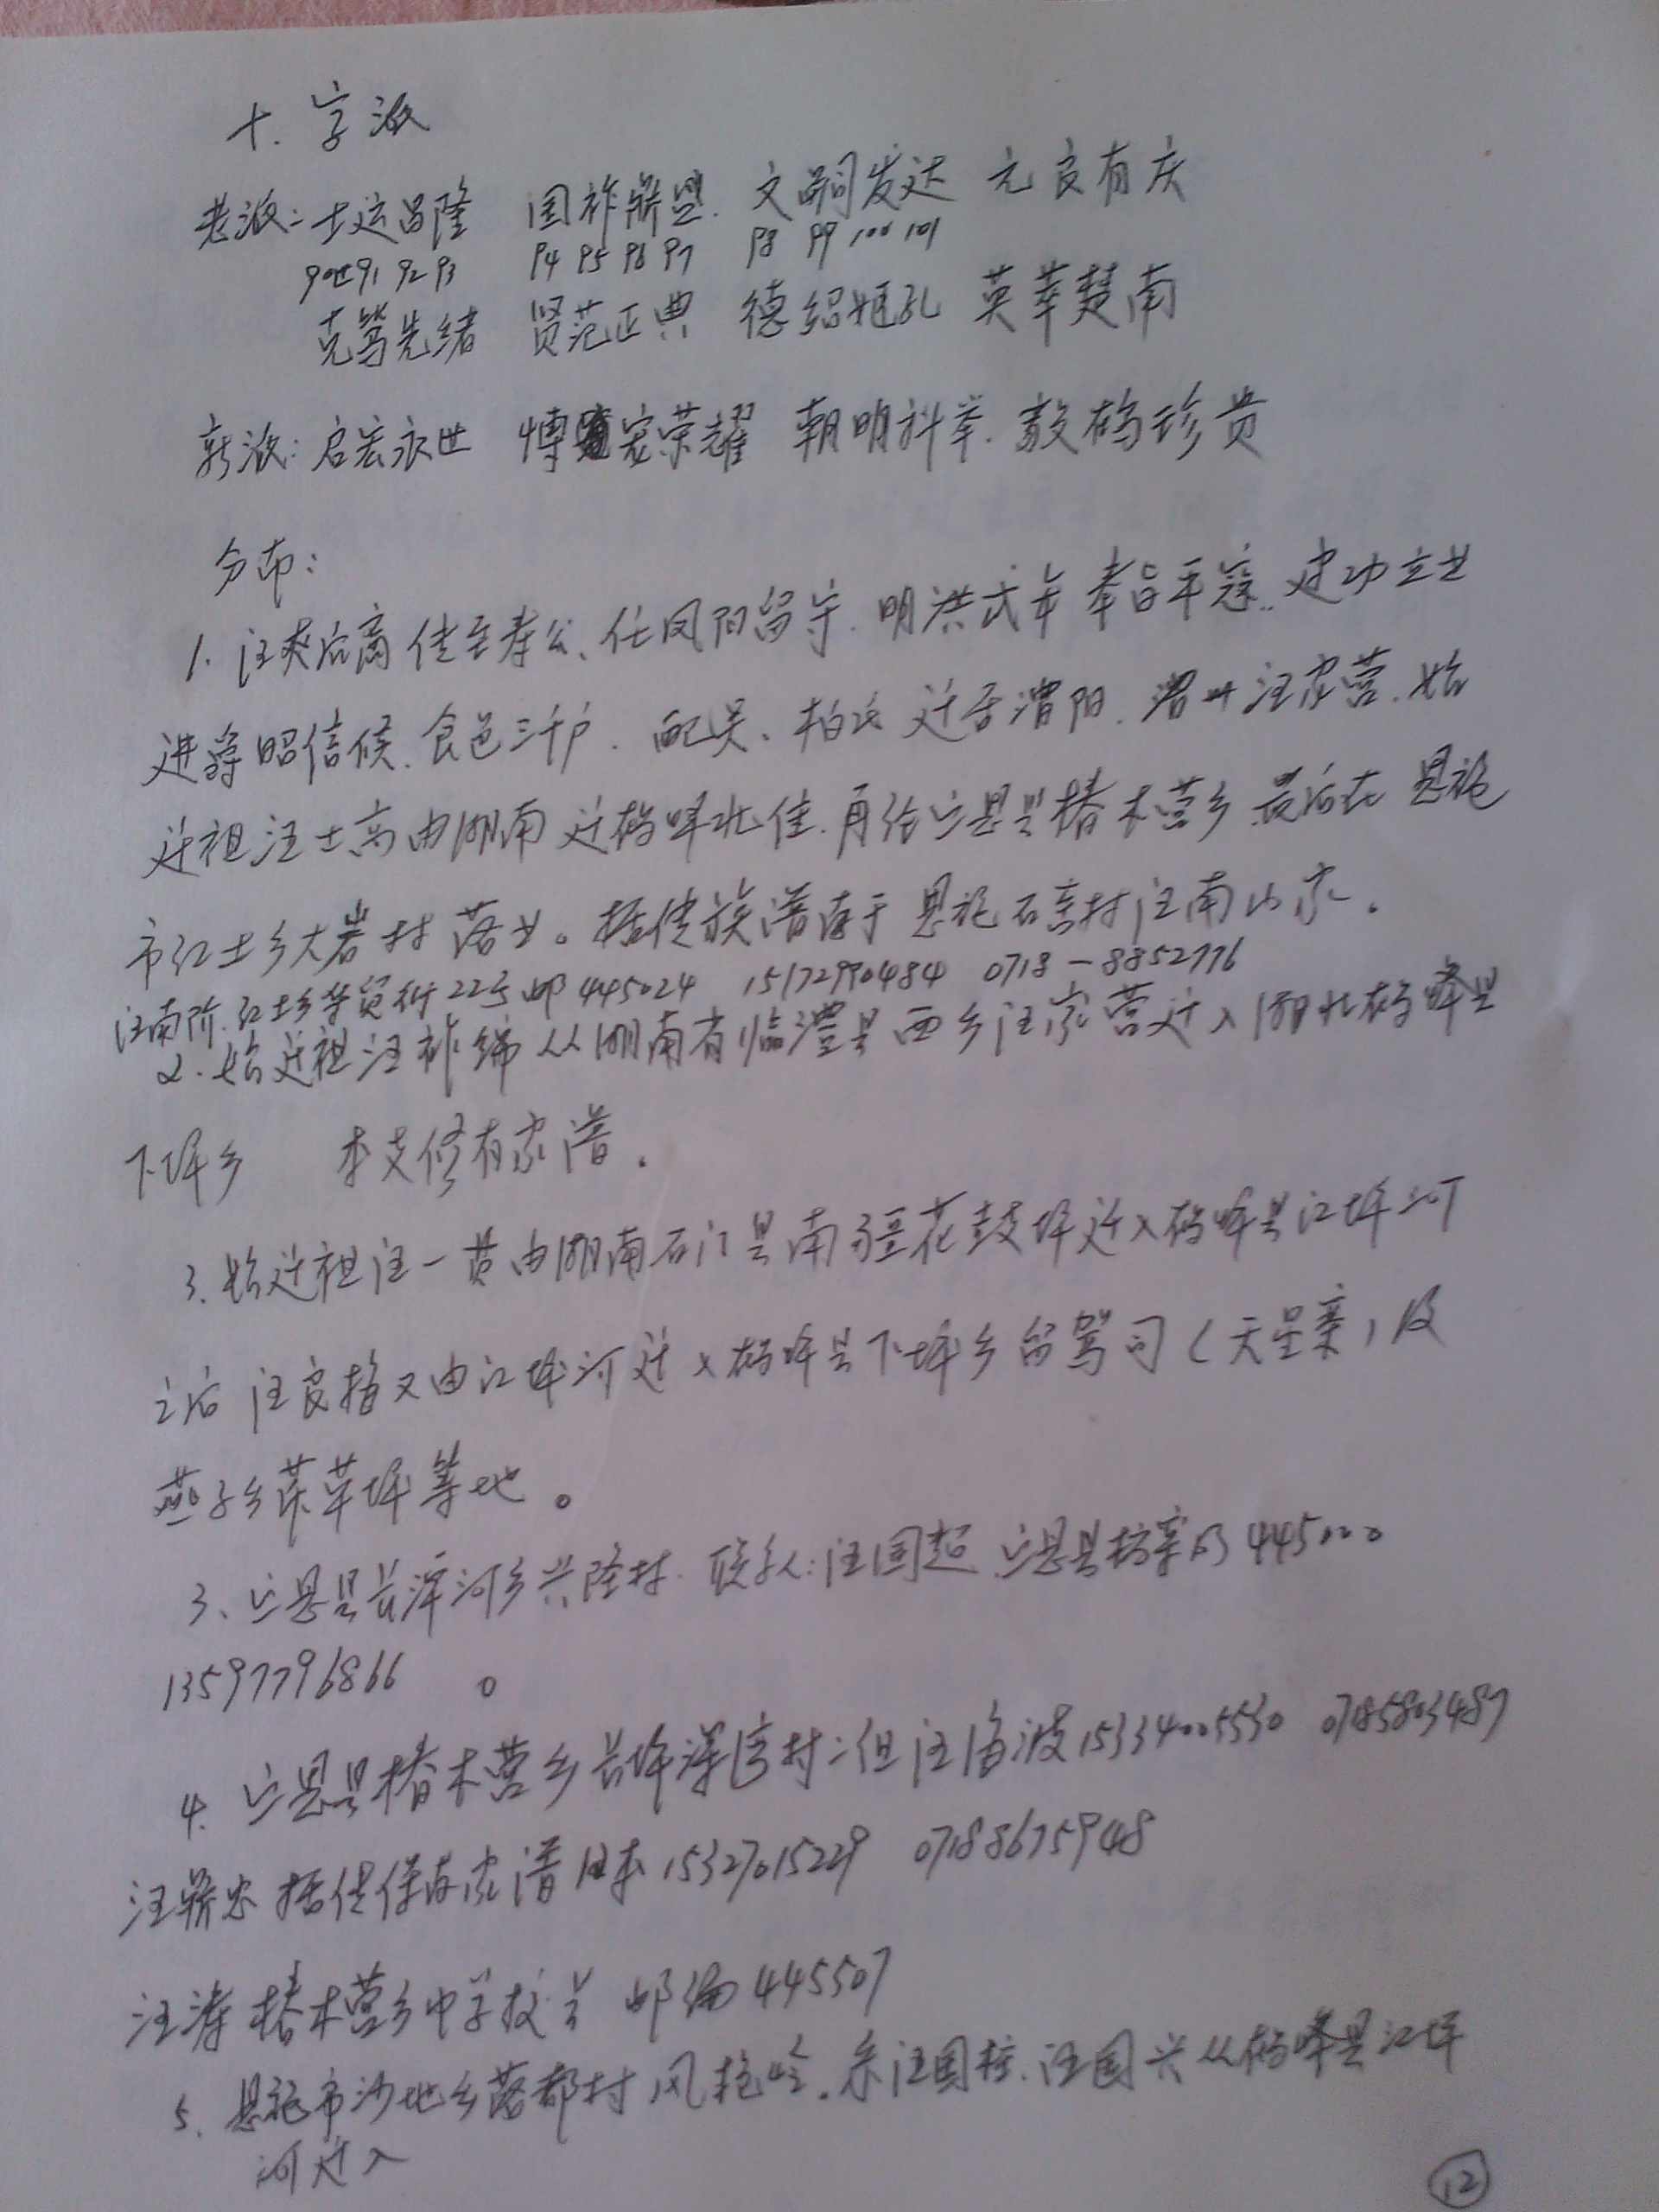 十.字派
老派:士运昌隆 国祚联盟.文嗣发达 元良有庆
90世91 92 93 94 95 96 97 98 99 100 101
克笃先绪 贤范正典 德绍姬孔 英萃楚南
新派:启宏永世 博家荣耀 朝明科举.敦鹤珍贵
分布:
1.汪爽后裔传至寿公、任凤阳留守.明洪武年奉旨平寇..建功立业
进爵昭信侯.食邑三千户.配吴、柏氏迁居渭阳.澧州汪家营.始
迁祖汪士高由湖南迁鹤峰北佳.再给宣恩县椿木营乡最后在恩施
市红土乡大岩村落业。据传族谱存于恩施石窑村汪南山家.
汪南阶.红土乡华贸街22号邮445024 15172990484 0718-8852776
2.始迁祖汪祚锦从湖南省临澧县西乡汪家营迁入湖北鹤峰县
下坪乡 本支修有家谱.
3.始迁祖汪一贯由湖南石门县南疆花鼓坪迁入鹤峰县江坪河
之后汪良梅又由江坪河迁入鹤峰县下坪乡留驾司(天星寨)及
燕子乡茶草坪等地。
3、宣恩县长潭河乡兴隆村.联系人:汪国超.宣恩县档案局445000
13597796866。
4.宣恩县椿木营乡长坪漆湾村二组汪海波15334005530 07185803487
汪 忠据传保存家谱旧本15327015229 07188675948
汪涛椿木营乡中学校长 邮编445507
5.恩施市沙地乡落都村风抱岭.系汪国柱.汪国兴从鹤峰县江坪
河迁入
12